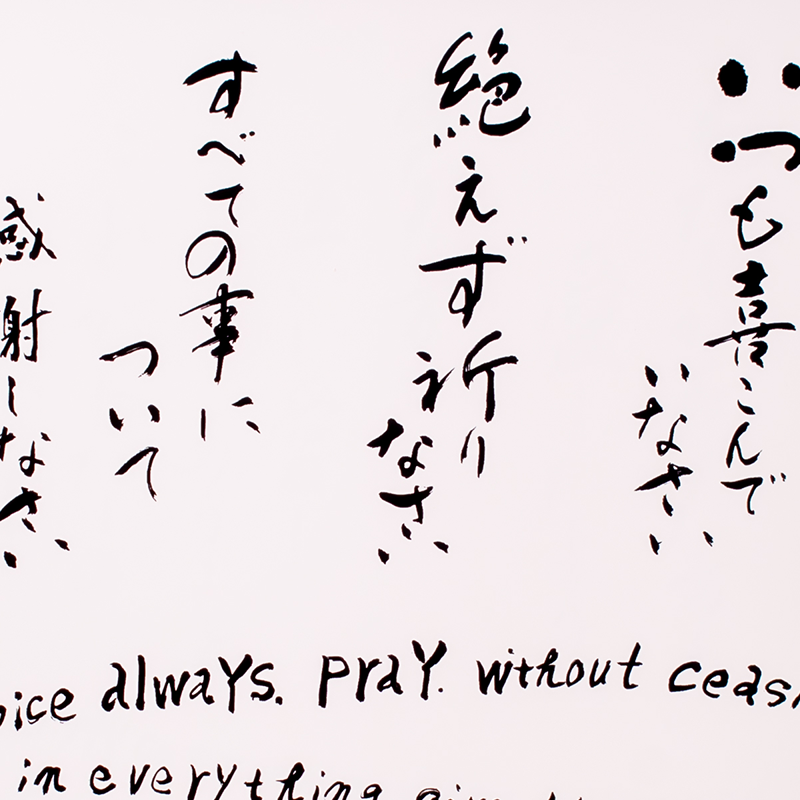 いつも喜こんで
いなさい
絶えず祈り
なさい
すべての事に
ついて
感謝しなさい
oice always. Pray. without ceas
in everything